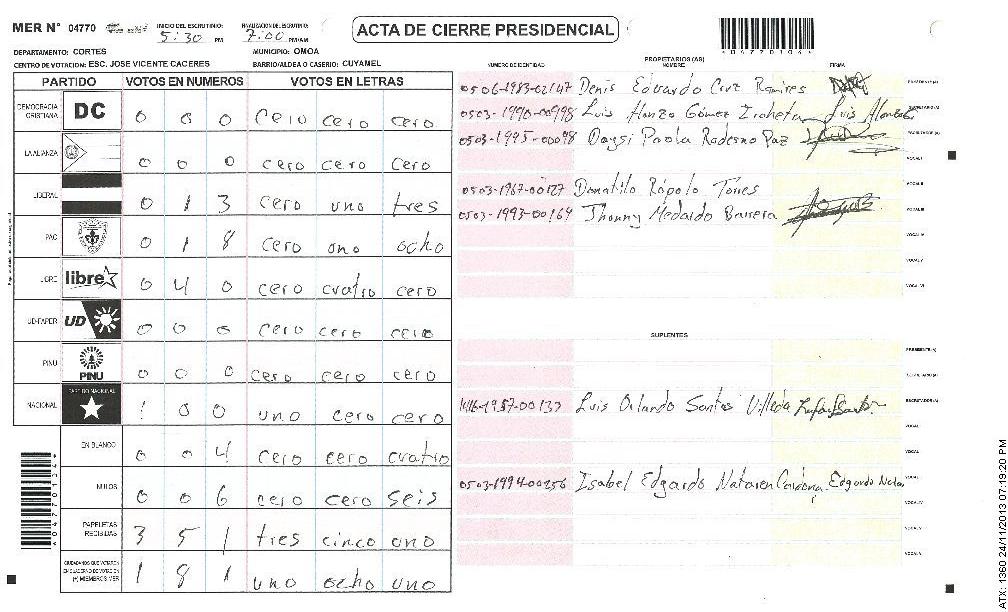 MER N° 04770
INICIO DEL ESCRUTINIO: 5:30 PM
FINALIZACION DEL ESCRUTINIO: 7:00 PM/AM
ACTA DE CIERRE PRESIDENCIAL
DEPARTAMENTO: CORTES MUNICIPIO: OMOA
CENTRO DE VOTACION: ESC. JOSE VICENTE CACERES BARRIO/ALDEA O CASERIO: CUYAMEL
PARTIDO VOTOS EN NUMEROS VOTOS EN LETRAS
DEMOCRACIA CRISTIANA DC 0 0 0 cero cero cero
LA ALIANZA 0 0 0 cero cero cero
LIBERAL 0 1 3 cero uno tres
PAC 0 1 8 cero uno ocho
LIBRE libre 0 4 0 cero cuatro cero
UD-FAPER UD 0 0 0 cero cero cero
PINU PINU 0 0 0 cero cero cero
NACIONAL PARTIDO NACIONAL 1 0 0 uno cero cero
EN BLANCO 0 0 4 cero cero cuatro
NULOS 0 0 6 cero cero seis
PAPELETAS RECIBIDAS 3 5 1 tres cinco uno
CIUDADANOS QUE VOTARON 1 8 1 uno ocho uno
(+) MIEMBROS MER
PROPIETARIOS (AS)
NUMERO DE IDENTIDAD NOMBRE FIRMA
0506-1983-02147 Denis Eduardo Cruz Ramires PRESIDENTE (A)
0503-1990-00998 Luis Alonzo Gómez Luis Alonzo SECRETARIO (A)
0503-1995-00098 Daysi Paola Paz ESCRUTADOR (A)
VOCAL I
0503-1967-00127 Donatilo Rápolo Torres VOCAL II
0503-1993-00164 Jhonny Medardo Barrera VOCAL III
VOCAL IV
VOCAL V
VOCAL VI
SUPLENTES
PRESIDENTE (A)
SECRETARIO (A)
1416-1957-00137 Luis Orlando Santos Villeda ESCRUTADOR (A)
VOCAL I
VOCAL II
0503-1994-00256 Isabel Edgardo Nataren Cardona Edgardo VOCAL IV
VOCAL V
VOCAL VI
ATX: 1360 24/11/2013 07:19:20 PM